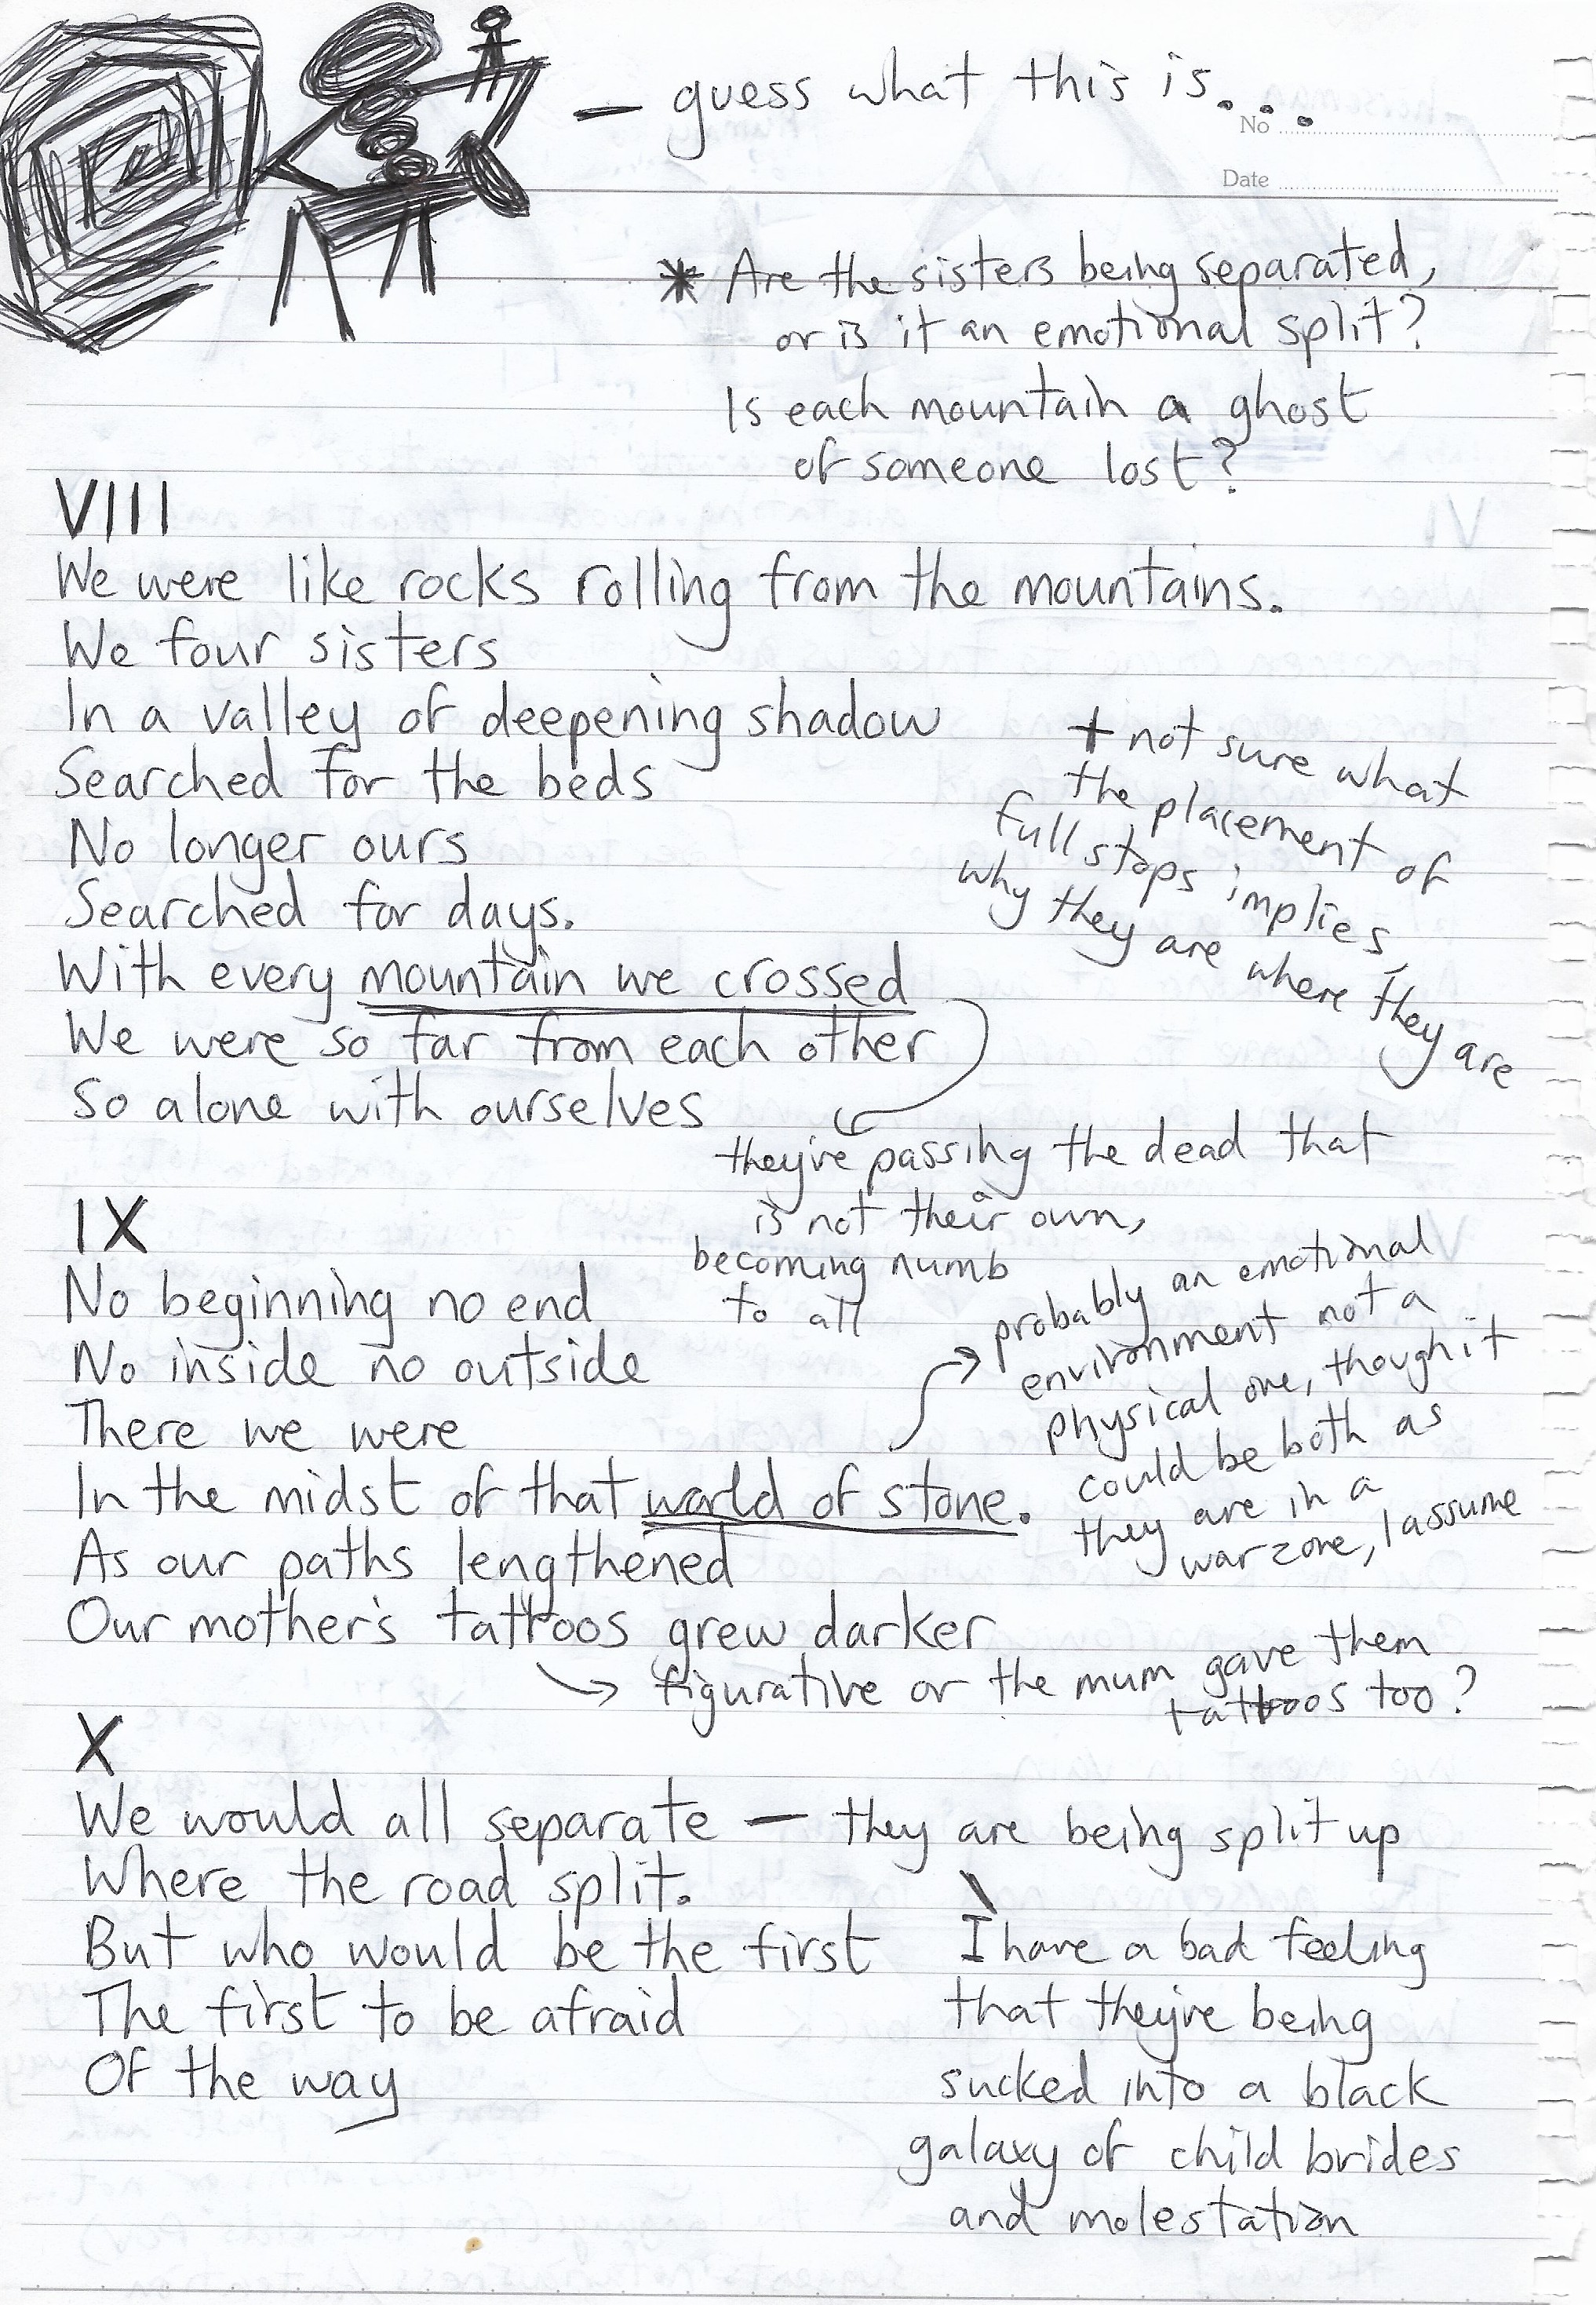 — guess what this is...
No
Date
* Are the sisters being separated,
or is it an emotional split?
Is each mountain a ghost
of someone lost?
VIII
We were like rocks rolling from the mountains.
We four sisters
In a valley of deepening shadow
Searched for the beds
No longer ours
Searched for days.
With every mountain we crossed
We were so far from each other
So alone with ourselves
+ not sure what
the placement of
full stops implies,
why they are where they are
they're passing the dead that
is not their own,
becoming numb
to all
IX
No beginning no end
No inside no outside
There we were
In the midst of that world of stone.
As our paths lengthened
Our mother's tattoos grew darker
probably an emotional
environment not a
physical one, though it
could be both as
they are in a
warzone, I assume
figurative or the mum gave them
tattoos too?
X
We would all separate — they are being split up
Where the road split.
But who would be the first
The first to be afraid
Of the way
I have a bad feeling
that they're being
sucked into a black
galaxy of child brides
and molestation